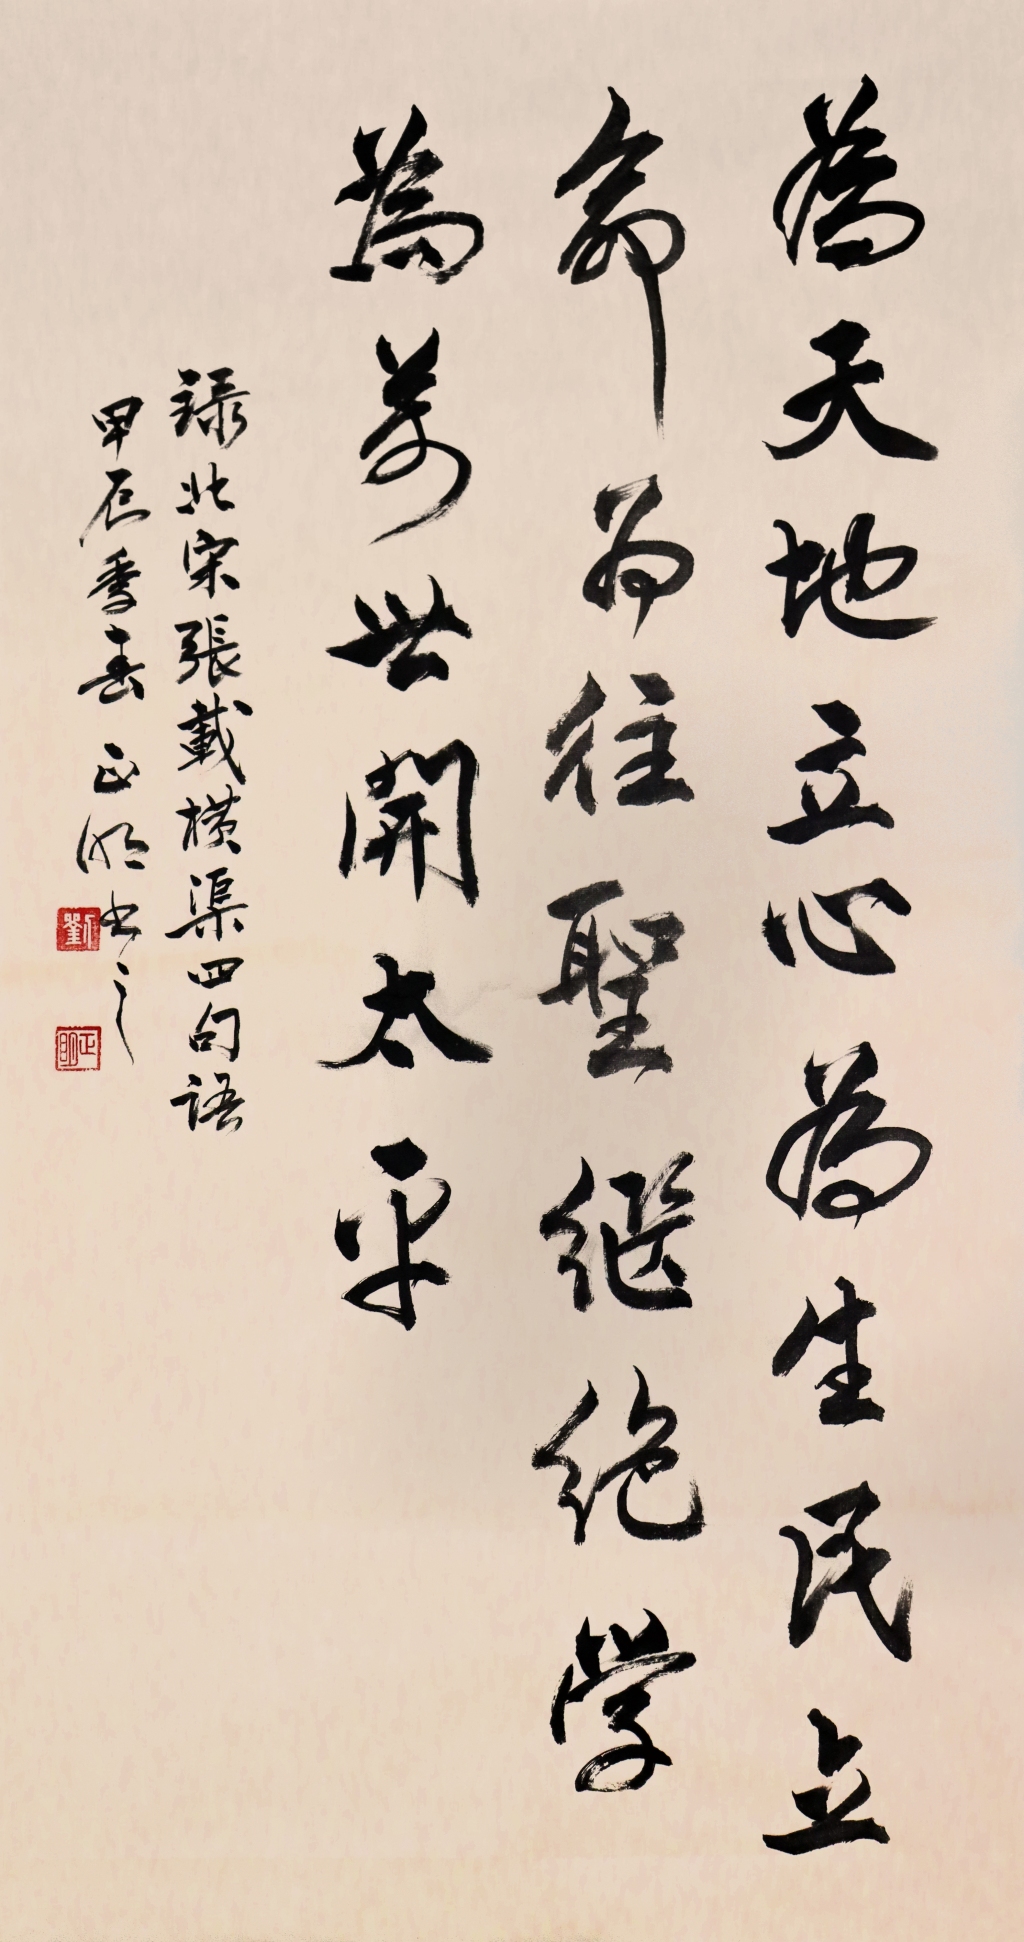 為天地立心為生民立
命為往聖继絕学
為萬世開太平
録北宋張載横渠四句语
甲辰季春 正明书之
劉
正明